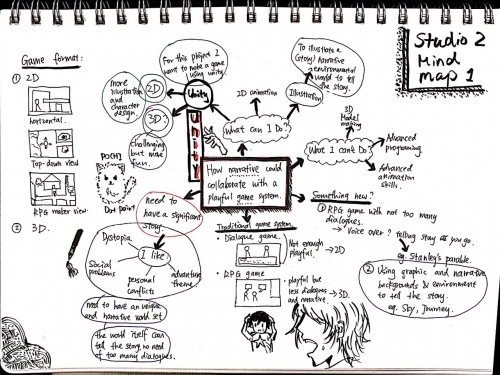 Studio 2
Mind
map 1
Game format:
① 2D
horizontal.
Top-down view
RPG maker view.
② 3D.
For this project I
want to make a game
using unity.
Unity
2D:
more
illustration
and
character
design.
3D:
challenging
but more
fun.
UNITY
What can I Do?
2D animation
Illustration
To illustrate a
(story) narrative
environmental
world to tell
the story.
What I can't Do?
3D
Model
making
Advanced
programing.
Advanced
animation
skills.
How narrative could
collaborate with a
playful game system.
need to
have a significant
story.
I like
Dystopia
Social
problems
personal
conflicts
adventure
theme
need to have an unique
and narrative world set
the world itself can
tell the story, no need
of too many dialogues.
POCHI
Dot point
Traditional game system.
- Dialogue game.
Not enough
playful.
→ 2D
- RPG game
- playful but
less dialogues
and narrative.
→ 3D.
Something new?
① RPG game with not too many
dialogues.
→ Voice over? telling story as you go.
eg. Stanley's parable.
② Using graphic and narrative
backgrounds & environment
to tell the story.
eg. Sky, Journey.